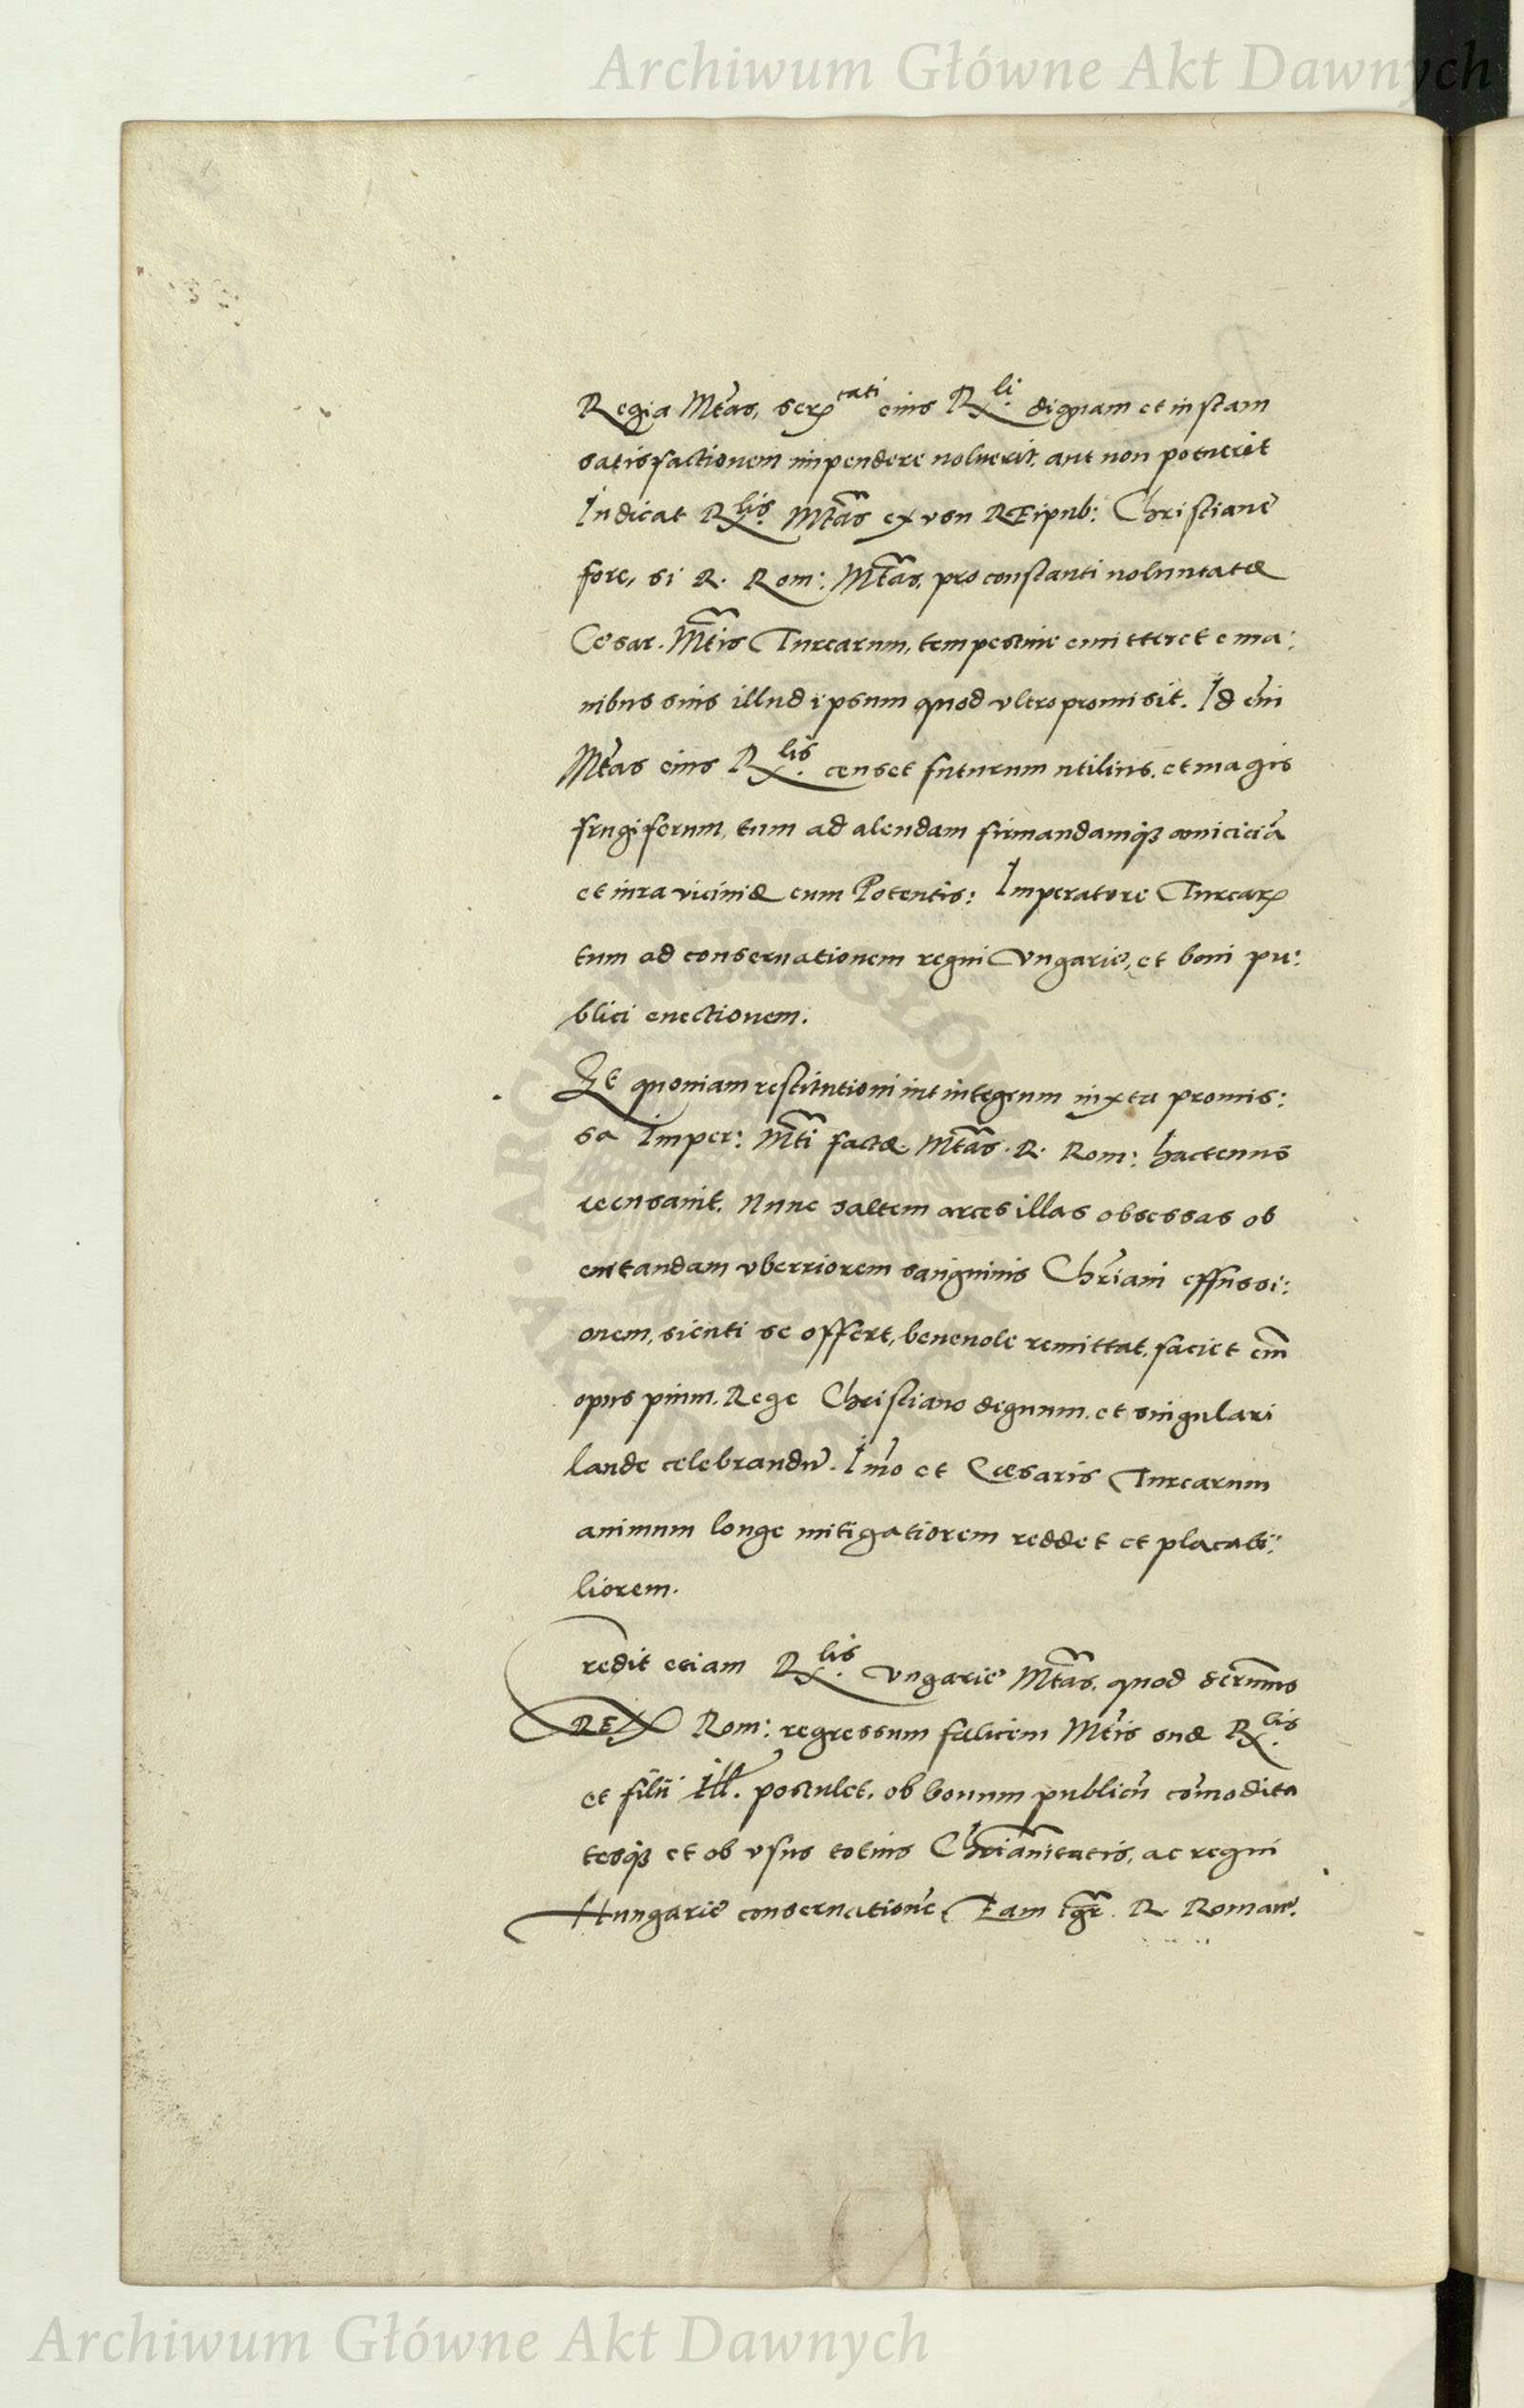 Archiwum Główne Akt Dawnych
Regia Mtas, ser tati eius R li dignam et iustam
satisfactionem impendere noluerit, aut non potuerit
Iudicat R lis Mtas ex usu REipub: Christiane
fore, si R. Rom: Mtas, pro constanti voluntate
Cesar. Mtis Turcarum, tempestiue emitteret e ma:
nibus suis illud ipsum quod vltro promisit. Id eni
Mtas eius R lis censet futurum utilius, et magis
frugiferum, tum ad alendam firmandamq3 amiciciã
et iura vicinie cum Potentis: Imperatore Turcar
tum ad conseruationem regni Vngarie, et boni pu:
blici euectionem.
Et quoniam restitutioni in integrum iuxta promis:
sa Imper: Mti facta Mtas. R. Rom: hactenus
recusauit. Nunc saltem arces illas obsessas ob
euitandam vberriorem sanguinis Chriani effussi:
onem, sicuti se offert, beneuole remittat, faciet em
opus pium. Rege Christiano degnum, et singulari
laude celebrandũ. Imo et Cæsaris Turcarum
animum longe mitigatiorem reddet et placabi:
liorem.
Credit etiam R lis Vngarie Mtas, quod sermus
REX Rom: regressum fœlicem Mtis sue R lis
et filii ill. postulet, ob bonum publicũ comodita
tesq3 et ob vsus totius Chrianitatis, ac regni
Hungarie conseruatione, Eam igr. R. Romane.
Archiwum Główne Akt Dawnych